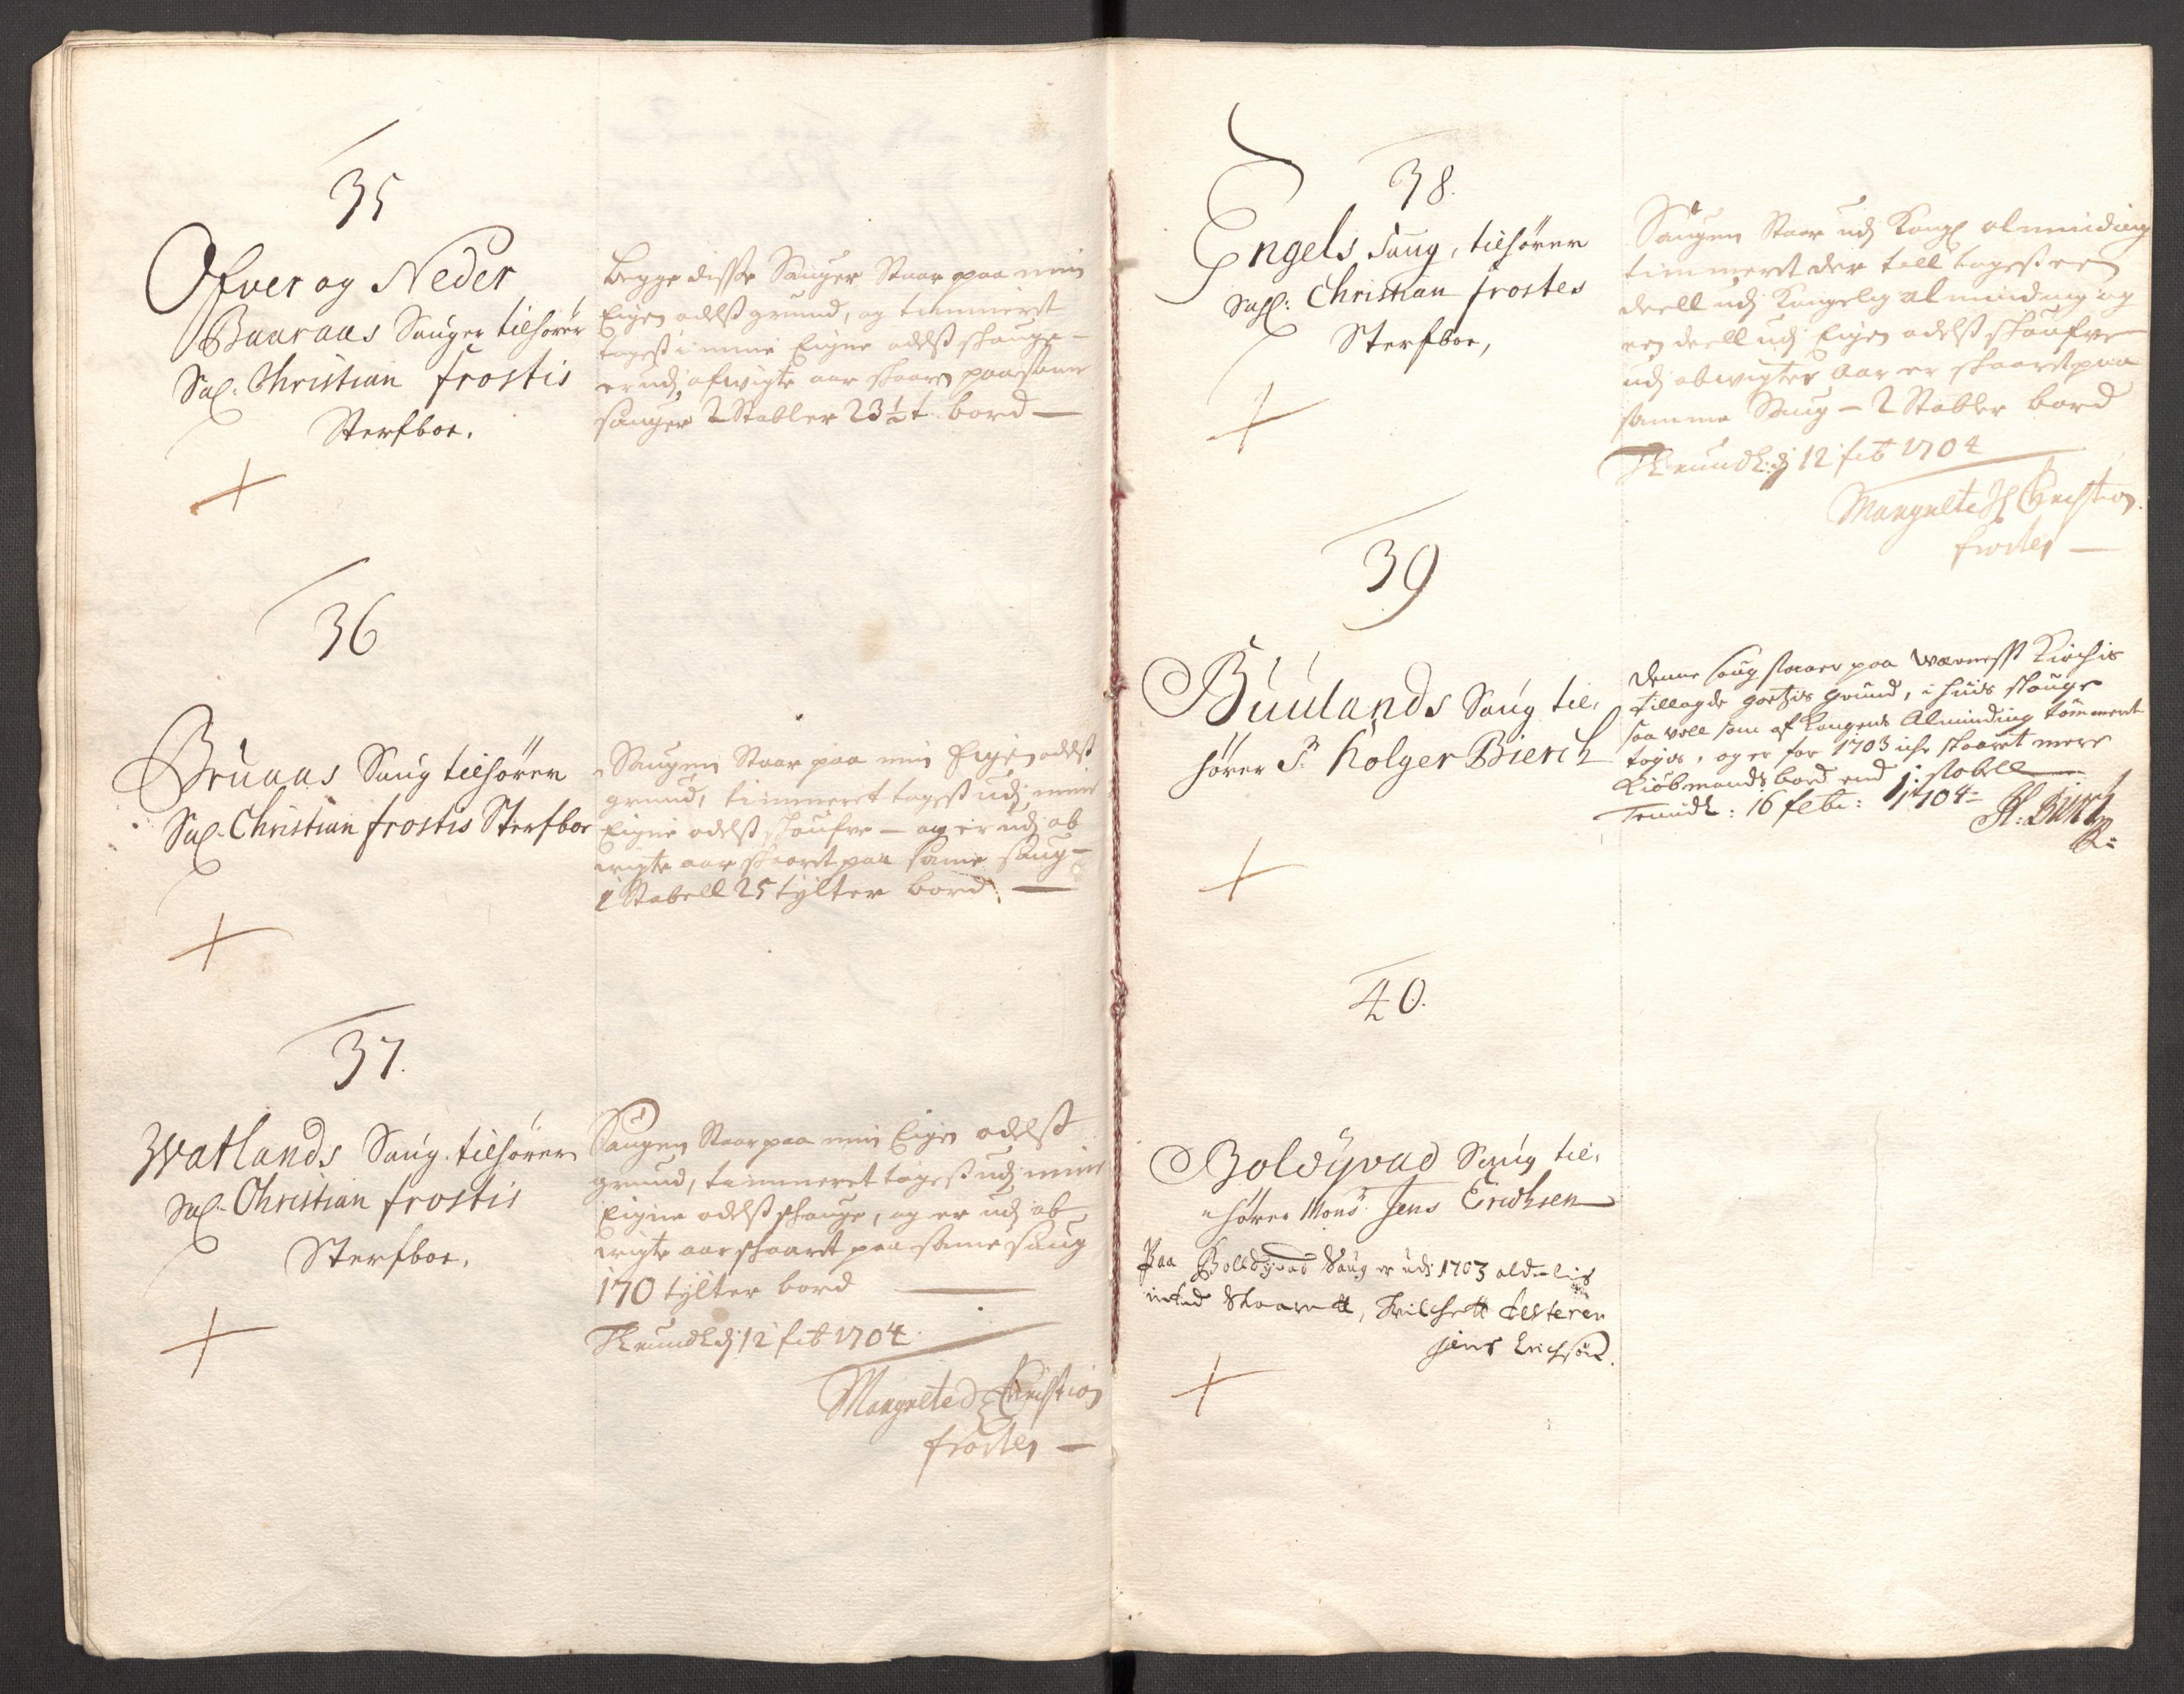 35
Ofver og Neder
Baaraas Sauger tilhører
Sal: Christian frostis
Sterfboe.
begge disse Sauger Staar paa min
Eigen odelß grund, og timmeret
tageß i mine Eigne odelß skauge –
er udj afvigte aar skaaren paa same
sauger 2 Stabler 23½ t. bord —
36
Bruaas Saug tilhører
Sal. Christian frostis Sterfboe
Saugen Staar paa min Eigen odelß
grund, timmeret tageß udj mine
Eigne odelß skoufve – og er udj af
wigte aar skaaret paa same saug –
1 Stabell 25 tylter bord: —
37.
Watlands Saug tilhører
Sal. Christian frostis
Sterfboe.
Saugen Staar paa min Eigen odelß
grund, timmeret tageß udj mine
Eigne odelß skauge, og er udj af
wigte aar skaaret paa same saug
170 tylter bord —
Tkrundh dj 12 feb 1704
Margrete Sl Christian
frostes —
38.
Engels Saug, tilhører
Sahl: Christian frostes
Sterfboe,
Saugen Staar udj Kongl alminding
timmeret der till tageß een
deell udj Kongelig alminding og
een deell udj Eigen odelß skoufve
udj abvigter Aar er skaaret paa
samme Saug – 2 Stabler bord
Tkrundh: dj 12 feb 1704
Margrete Sl Christian
frostes —
39
Buulands Saug til,
hører Sr. Holger Bierch
Denne saug staaer paa Wærness Kirchis
tillagde godzis grund, i huis skouge
saa well som af Kongens Alminding tømmeret
tages, og er for 1703 iche skaaret mere
Kiøbmands bord end 1: stabell
Trundh: 16 febr: 1704
H: Birch
40.
Boldyvad Saug til,
hører Mons. Jens Erichsen
Paa Bolldyvad Saug er udi 1703 aldelis
inted Skaarett, Hvilchett Attesterer
Jens Erichsøn.